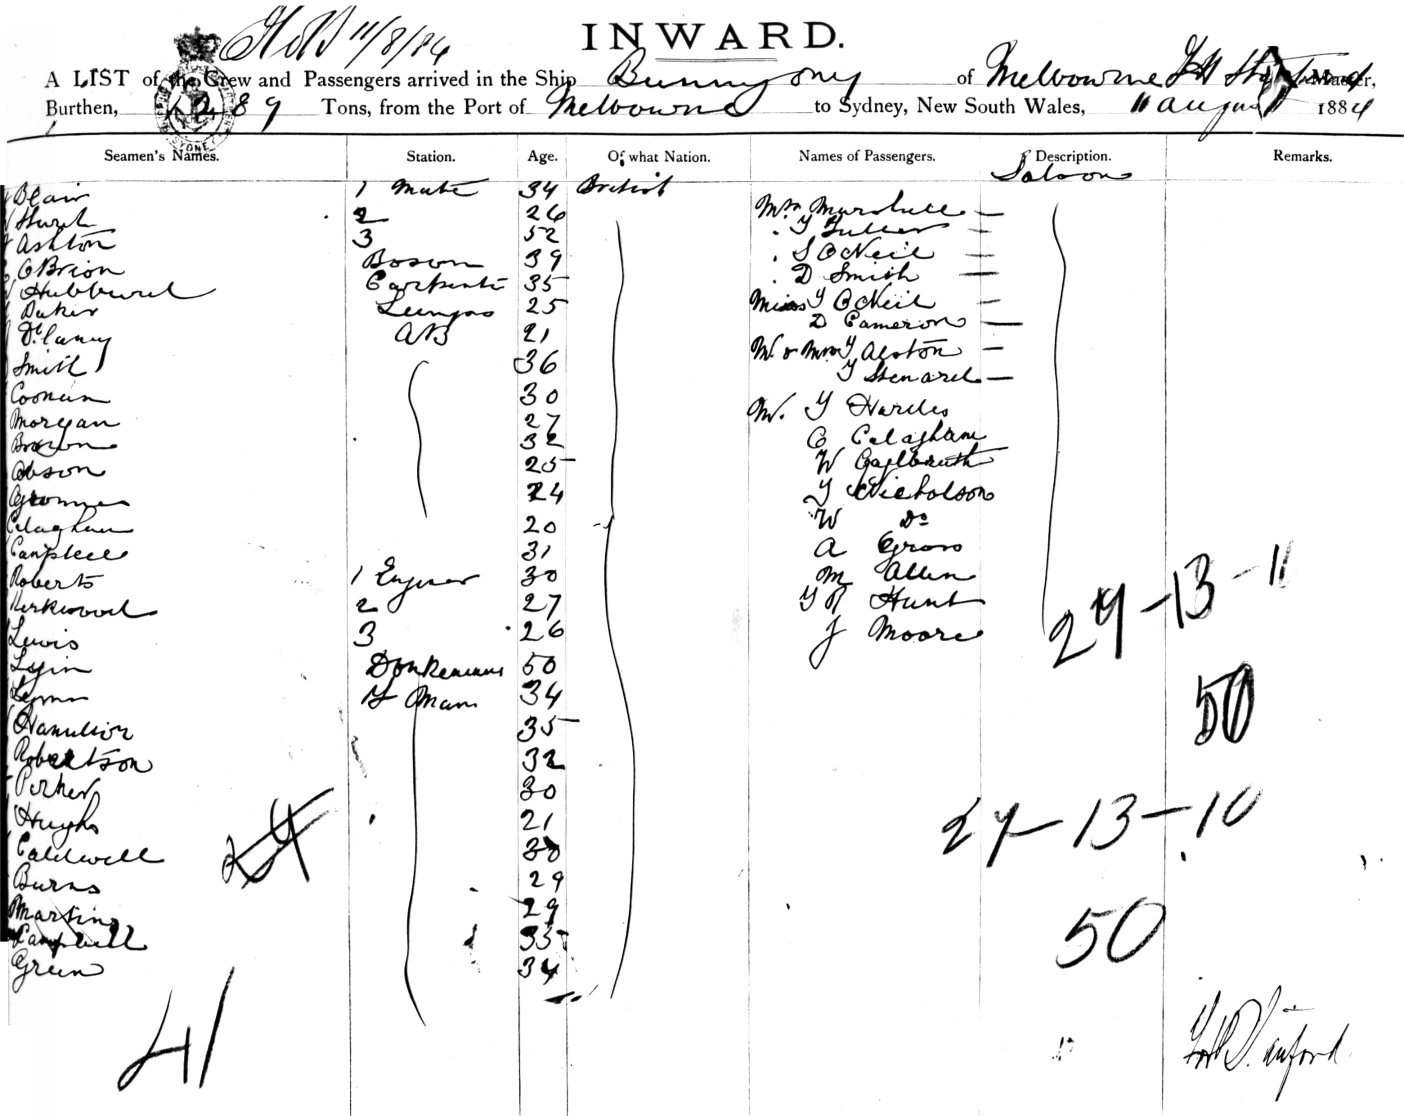 INWARD.
11/8/84
A LIST of the Crew and Passengers arrived in the Ship Bunnyong of Melbourne Master,
Burthen, 1289 Tons, from the Port of Melbourne to Sydney, New South Wales, 11 august 1884
Seamen's Names. Station. Age. Of what Nation. Names of Passengers. Description. Remarks.
Saloon
Blair 1 Mate 34 British
Hurst 2 26 Mrs Marshall —
Ashton 3 52 Y Fuller —
O'Brion Boson 39 S O'Neil —
Hubbard Carpenter 35 D Smith —
Duker Lamps 25 Miss Y O'Neil —
Delaney AB 21 D Cameron —
Smith 36 M. & Mrs Y Alston —
Y Stenard —
Coonan 30 M. Y Hardes
Morgan 27 C Calagham
Brown 32 W Galbraith
Obson 25 Y Nicholson
24
Calaghan 20 W Do
Campbell 31 A Gross
Roberts 1 Engineer 30 M Allen
Kirkwood 2 27 Y R Hunt
Lewis 3 26 J Moore
24-13-11
Lyin Donkeyman 50
34
50
Hamilton 35
Robertson 32
Perker 30
Hughs 21
24
27-13-10
Caldwell 30
Burns 29
Martin 29
Campbell 35
50
Green 34
41